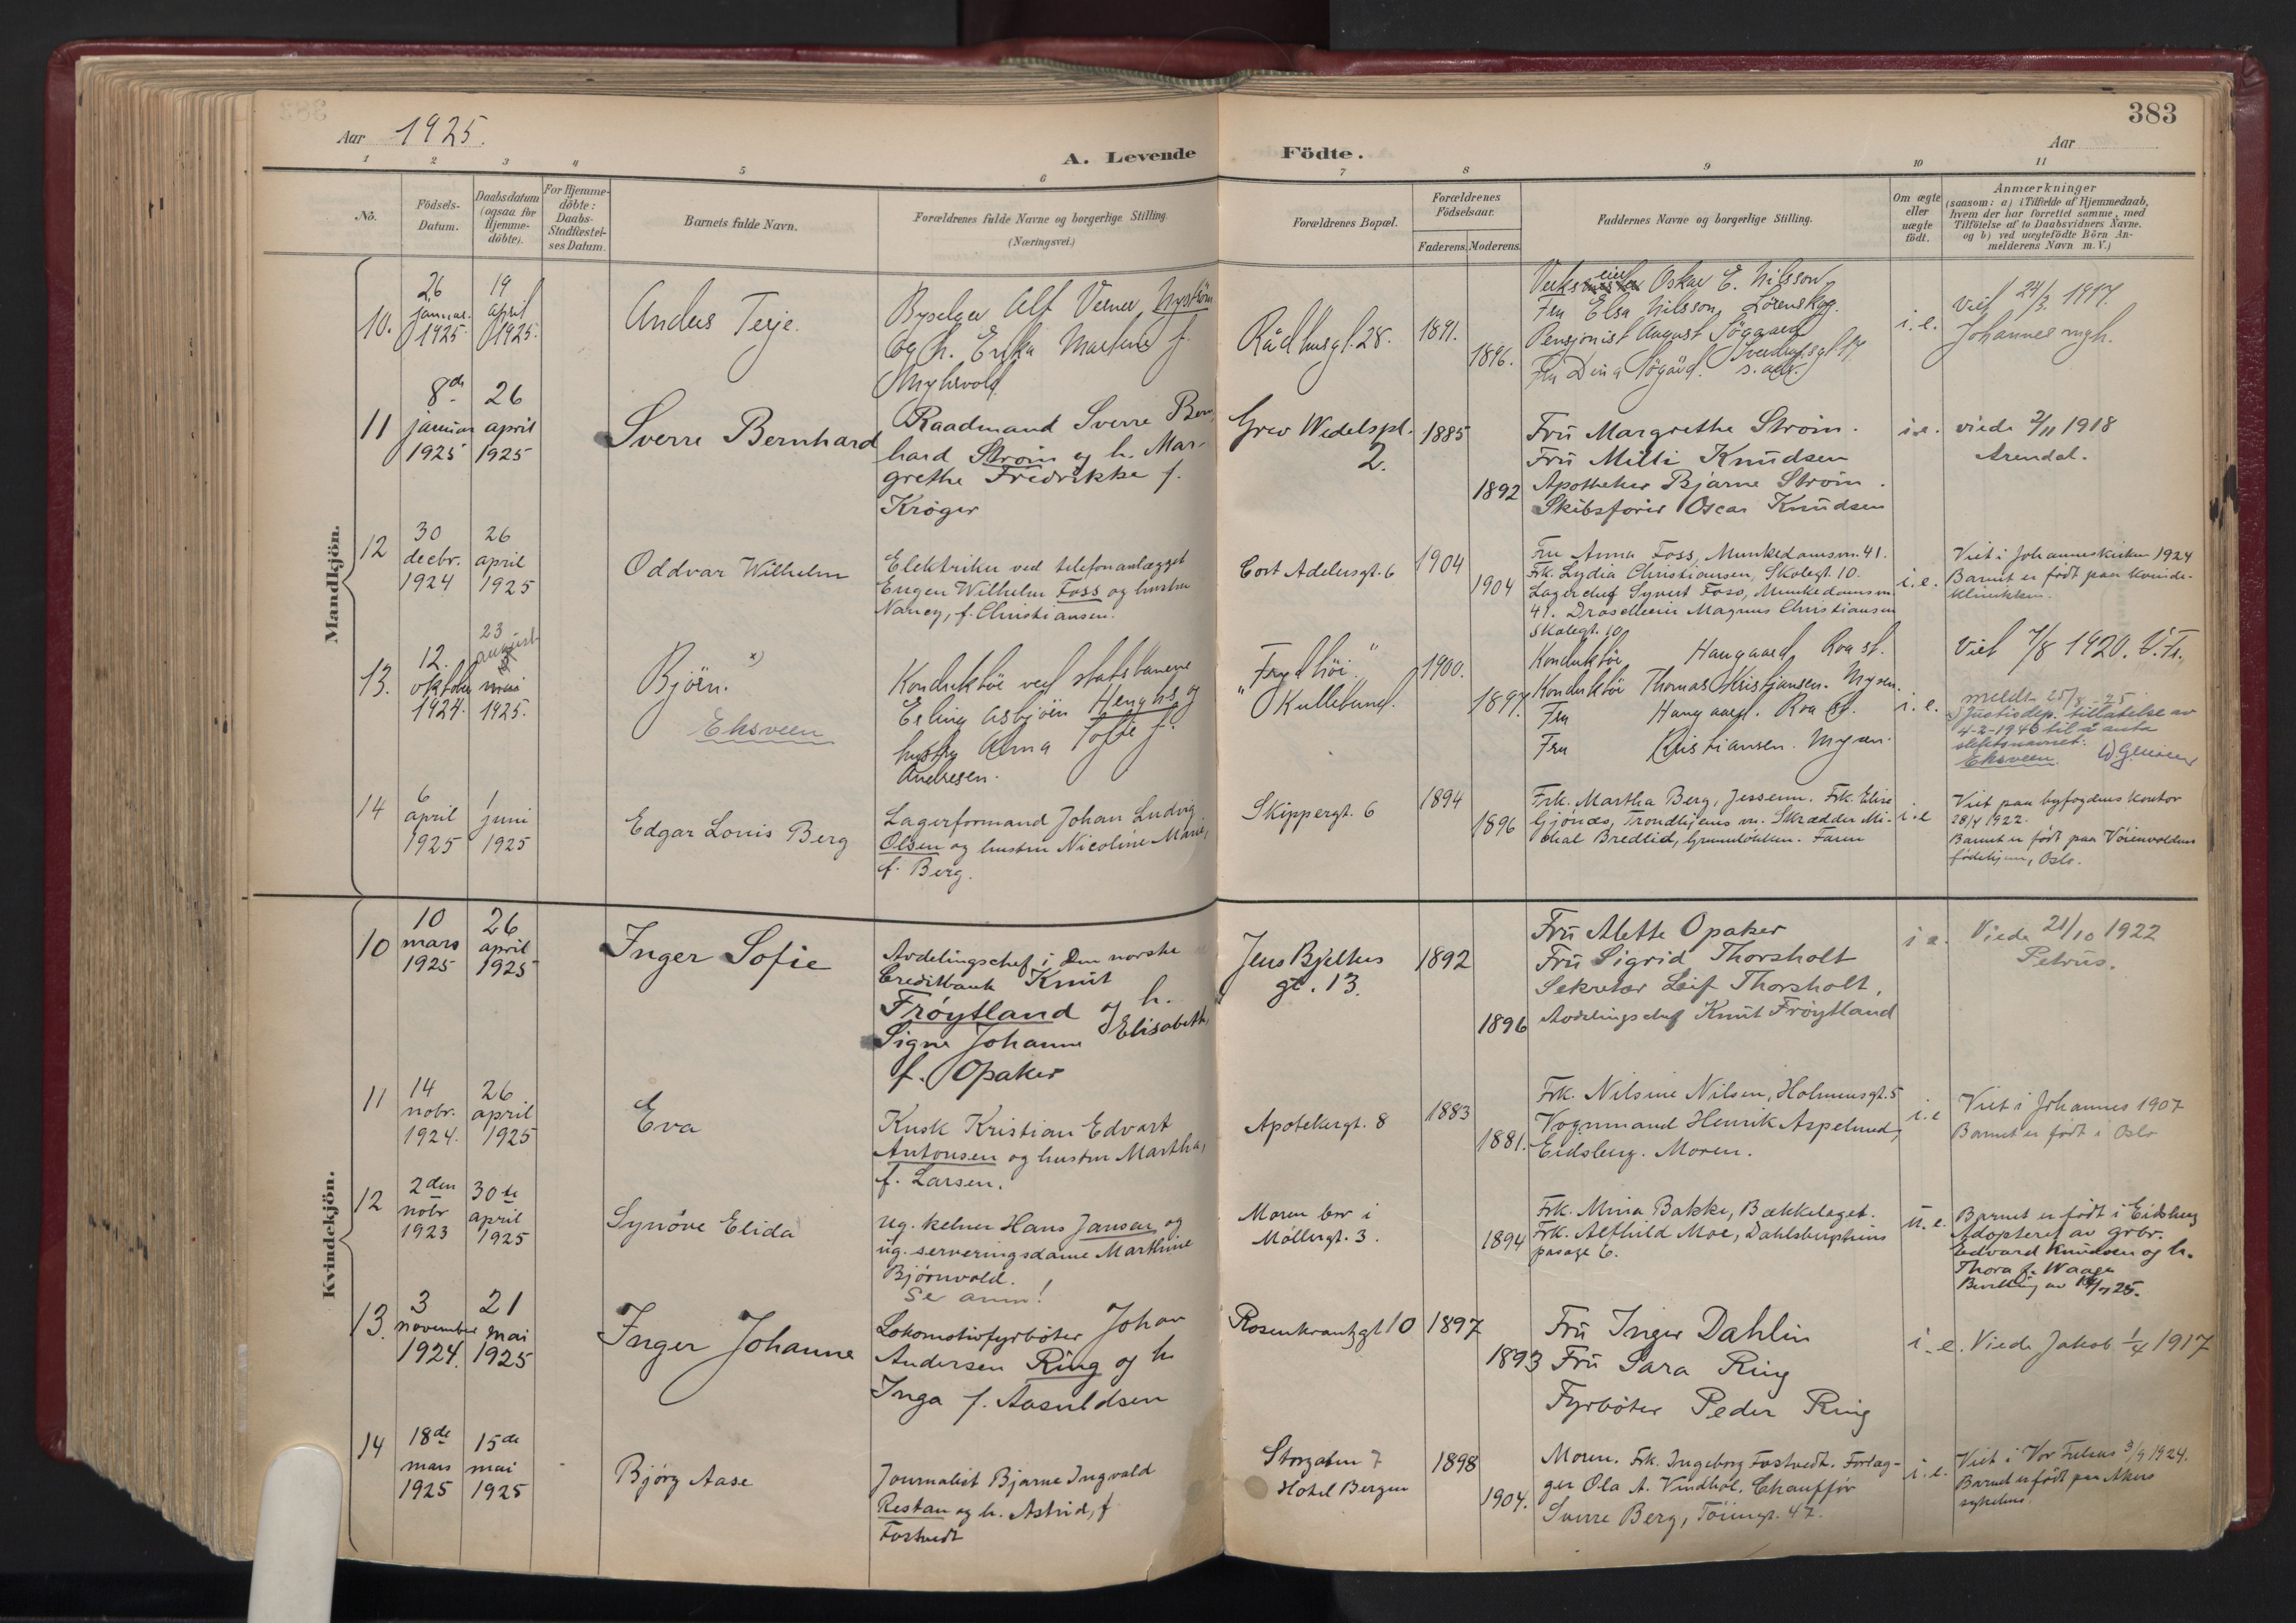 383
Aar 1925.
Aar
A. Levende Födte.
1 2 3 4 5 6 7 8 9 10 11
No.
Födsels-Datum.
Daabsdatum (ogsaa for Hjemme-döbte).
For Hjemme-döbte: Daabs-Stadfæstel-ses Datum.
Barnets fulde Navn.
Forældrenes fulde Navne og borgerlige Stilling.
(Næringsvei.)
Forældrenes Bopæl.
Forældrenes Födselsaar.
Faderens. Moderens.
Faddernes Navne og borgerlige Stilling.
Om ægte eller uægte födt.
Anmærkninger
(saasom: a) i Tilfælde af Hjemmedaab,
hvem der har forrettet samme, med
Tilföielse af to Daabsvidners Navne.
og b) ved uægtefödte Börn An-
melderens Navn m. V.)
Mandkjön.
10.
26 januar 1925.
19 april 1925.
Anders Terje.
Byselger Alf Verner Nyström
og h. Erika Marline f.
Myhrvold
Rådhusgt. 28.
1891.
1896.
Oskar E. Nilsson
Fru Elsa Nilsson, Lörenskog.
Pensjonist August Sögaard
Fru Dina Sögård.
i. e.
Viet 24/3 1917.
Johannes mgh.
11
8de januar 1925
26 april 1925
Sverre Bernhard
Raadmand Sverre Bern
hard Strøm og h. Mar-
grethe Fredrikke f.
Krøger
Grev Wedelspl.
2.
1885
1892
Fru Margrethe Strøm.
Fru Milli Knudsen
Apotheker Bjarne Strøm.
Skibsfører Oscar Knudsen
i. e.
viede 2/11 1918
Arendal.
12
30 decbr. 1924
26 april 1925
Oddvar Wilhelm
Elektriker ved telefonanlægget
Eugen Wilhelm Foss og hustru
Nancy, f. Christiansen.
Cort Adelersgt. 6
1904
1904
Fru Anna Foss, Munkedamsvn. 41.
Frk. Lydia Christiansen, Skolegt. 10.
Lagerchef Syvert Foss, Munkedamsvn.
41. Magnus Christiansen
Skolegt. 10
i. e.
Viet i Johanneskirken 1924
Barnet er født paa Kvinde-
klinikken.
13.
12. oktober 1924.
23 august mai 1925.
Bjørn. x)
Eksveen
Konduktör ved statsbanene
Erling Asbjörn Henghs og
hustru Alma Tofte f.
Andresen.
"Fredhöi"
Kullebund.
1900.
1897.
Konduktör Haugaard, Roa st.
Konduktör Thomas Kristiansen. Mysen.
Fru Haugaard. Roa st.
Fru Kristiansen. Mysen.
i. e.
Viet 7/8 1920. V. Fr.
meldt 25/8 - 25
x) Justisdep. tillatelse av
4-2-1943 til å anta
slektsnavnet:
Eksveen.
14
6 april 1925
1 juni 1925
Edgar Louis Berg
Lagerformand Johan Ludvig
Olsen og hustru Nicoline Marie,
f. Berg.
Skippergt. 6
1894
1896
Frk. Martha Berg, Jessenn. Frk. Elise
Gjønæs, Trondhjems vn. Skrædder Mi-
chal Bredlid, Grünerløkken. Faren
i. e
Viet paa byfogdens kontor
28/4 1922.
Barnet er født paa Vöienvoldens
fødehjem, Oslo.
Kvindekjön.
10
10 mars 1925
26 april 1925
Inger Sofie
Avdelingschef i Den norske
Creditbank Knut
Frøytland og h.
Signe Johanne Elisabeth,
f. Opaker
Jens Bjelkes
gt. 13.
1892
1896
Fru Alette Opaker
Fru Sigrid Thorsholt
Sekretær Leif Thorsholt,
Avdelingschef Knut Frøytland
i e.
Viede 21/10 1922
Petrus.
11
14 nobr. 1924.
26 april 1925
Eva
Kusk Kristian Edvart
Antonsen og hustru Martha,
f. Larsen.
Apotekergt. 8
1883
1881.
Frk. Nilsine Nilsen, Holmensgt. 5
Vognmand Henrik Aspelund,
Eidsberg. Moren.
i. e
Viet i Johannes 1907
Barnet er født i Oslo
12
2den nobr 1923
30te april 1925
Synöve Elida
Ug. kelner Hans Jansen, og
ug. serveringsdame Marthine
Bjørnvold.
Se anm!
Moren bor i
Møllergt. 3.
1894
Frk. Mina Bakke, Bækkelaget.
Frk. Alfhild Moe, Dahlsbergstiens
pasage 6.
u. e.
Barnet er født i Eidsberg
Adopteret av grbr.
Edvard Knudsen og h.
Thora f. Waage
13.
3 november 1924.
21 mai 1925
Inger Johanne
Lokomotivfyrbøter Johan
Andersen Ring og h
Inga f. Aasuldsen
Rosenkrantzgt 10
1897
1893
Fru Inger Dahlin
Fru Sara Ring
Fyrbøter Peder Ring
i. e.
Viede Jakob 1/4 1917
14
18de mars 1925
15de mai 1925
Bjørg Aase
Journalist Bjarne Ingvald
Restan og h. Astrid, f
Fostvedt
Storgaten 7
Hotel Bergen
1898
1904.
Moren. Frk. Ingeborg Fostvedt. Forlæg-
ger Ola A. Vindhol. Chauffør
Sverre Berg, Töiengt. 47.
i. e.
Viet i Vor Frelsers 3/9 1924.
Barnet er født paa Akers
sykehus.